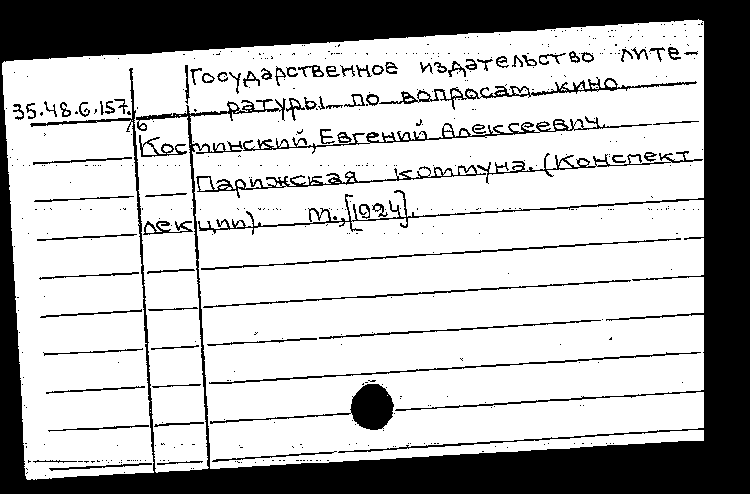 Государственное издательство лите-
35.48.6.157. ратуры по вопросам кино.
/6
Костинский, Евгений Алексеевич.
Парижская коммуна. (Конспект
лекции). М., [1924].